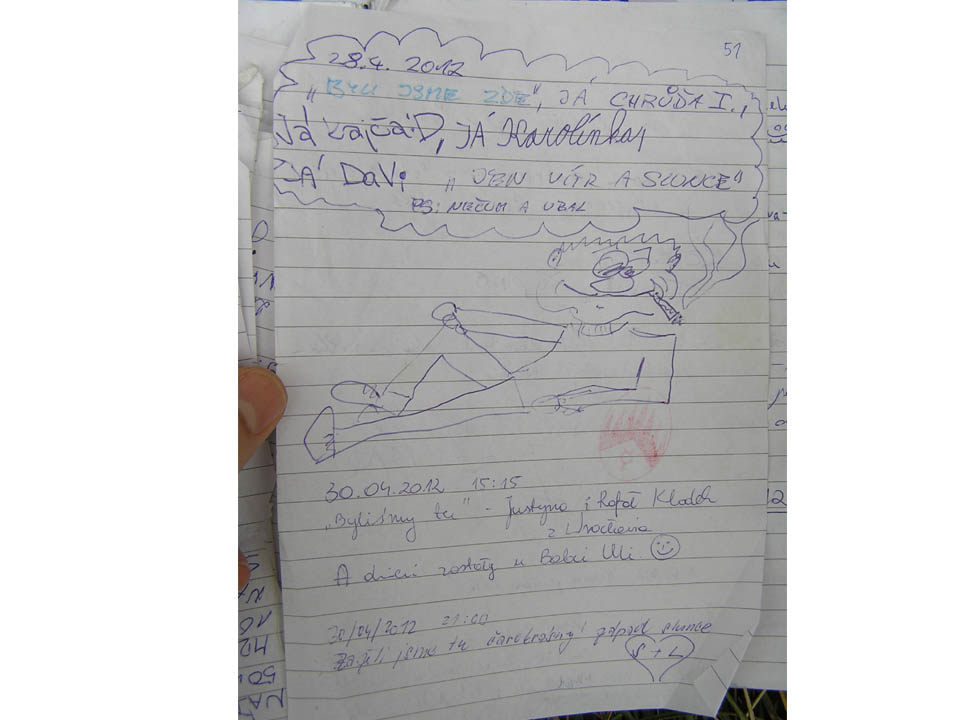 51
28.4. 2012
„BYLI JSME ZDE", JÁ CHRŮĎA I.,
JÁ KAJČA:D, JÁ Karolínka,
JÁ DaVi „JEN VÍTR A SLUNCE"
PS: NEČUM A
30.04.2012 15:15
„Byliśmy tu" - Justyna i Rafał
z Wrocławia
A dzieci zostały u Babci Uli ☺
30/04/2012 21:00
Zažili jsme tu čarokrásný západ slunce
S + L